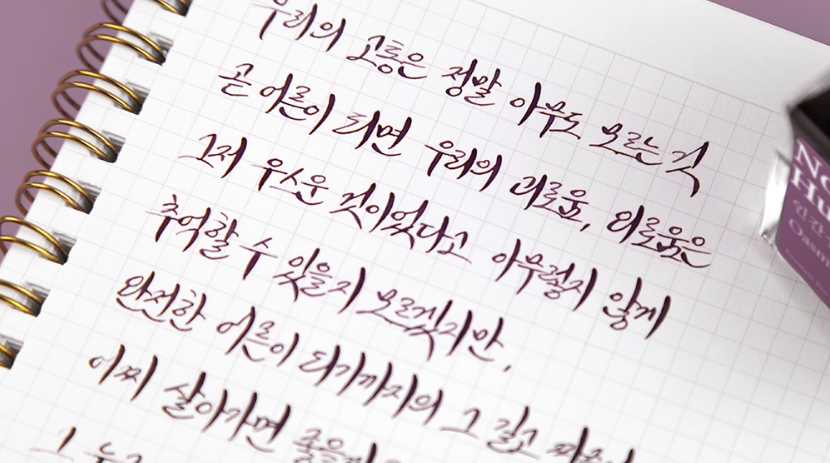 우리의 고통은 정말 아무도 모르는 것
곧 어른이 되면 우리의 괴로움, 외로움은
그저 우스운 것이었다고 아무렇지 않게
추억할 수 있을지 모르겠지만,
완전한 어른이 되기까지의 그 길고
어찌 살아가면
그